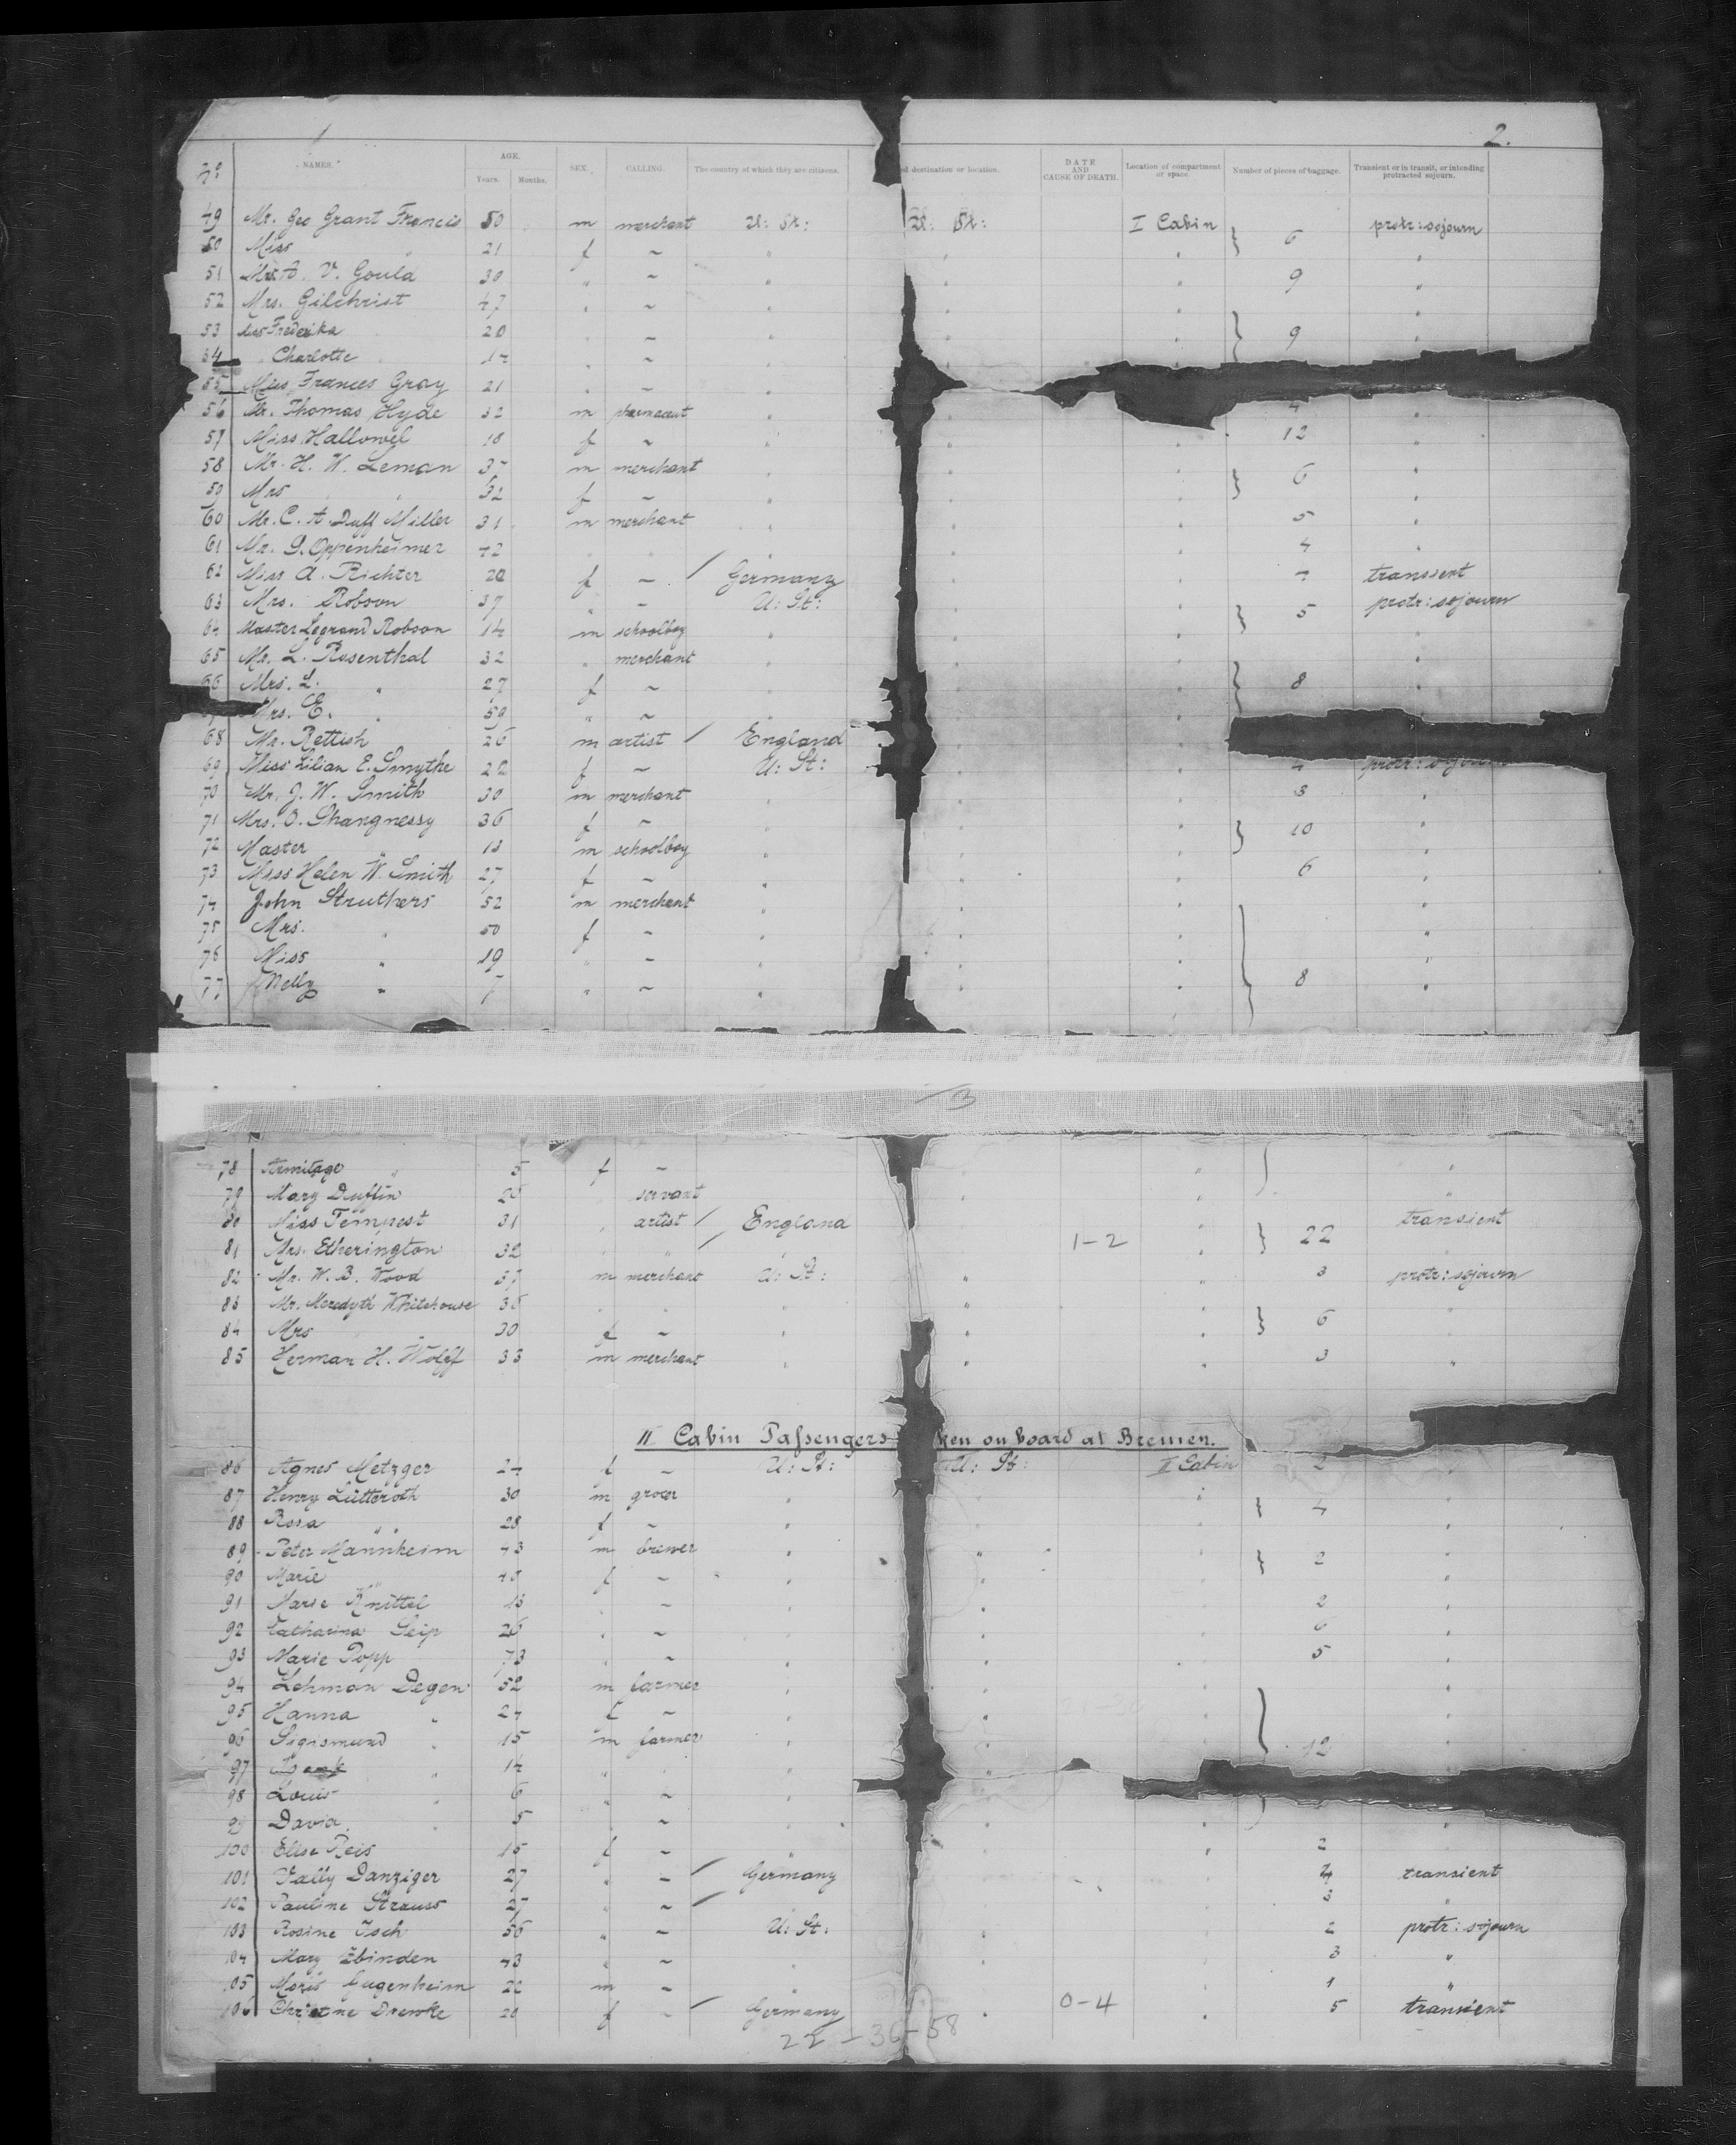 1 2.
No NAMES. AGE. Years. Months. SEX. CALLING. The country of which they are citizens. d destination or location. DATE AND CAUSE OF DEATH. Location of compartment or space. Number of pieces of baggage. Transient or in transit, or intending protracted sojourn.
49 Mr. Geo Grant Francis 50 m merchant U: St: U: St: I Cabin protr: sojourn
50 Miss " 21 f ~ " " " } 6 "
51 V. Gould 30 " ~ " " " 9 "
52 Mrs. Gilchrist 47 " ~ " " "
53 Miss Frederika 20 " ~ " " " } 9 "
54 " Charlotte " 14 " ~ " " "
55 Miss Frances Gray 21 " ~ "
56 Mr. Thomas Hyde 32 m " " 4 "
57 Miss Hallowel 18 f ~ " " " 12 "
58 Mr. H. W. Leman 37 m merchant " " " } 6 "
59 Mrs " " 32 f ~ " " " "
60 Mr. C. A. Duff Miller 31 m merchant " " " 5 "
61 Mr. S. Oppenheimer 42 " " " " " 4 "
62 Miss A. Richter 20 f ~ / Germany " " transient
63 Mrs. Robson 37 " ~ U: St: " " } 5 protr: sojourn
64 Master Legrand Robson 14 m schoolboy " " " "
65 Mr. L. Rosenthal 32 " merchant " " " "
66 Mrs. L. " 27 f ~ " " " } 8 "
Mrs. E. " 59 " ~ " " "
68 Mr. Rettish 26 m artist / England
69 Miss Lilian E. Smythe 22 f ~ U: St: protr: sojourn
70 Mr. J. W. Smith 30 m merchant " " " 3 "
71 Mrs. O. Shangnessy 36 f ~ " " " } 10 "
72 Master " 13 m schoolboy " " " "
73 Miss Helen W. Smith 27 f ~ " " " 6 "
74 John Struthers 52 m merchant " " " "
75 Mrs. " 50 f ~ " " " "
76 Miss " 19 " ~ " " " "
77 Nelly " 7 " ~ " " " } 8 "
3
78 Armitage " 5 f ~ " " "
79 Mary Duffin 26 " servant " " "
80 Miss Tempest 31 " artist / England transient
81 Mrs. Etherington 32 " " / " 1-2 " } 22 "
82 Mr. W. B. Wood 37 m merchant U: St: " " 3 protr: sojourn
83 Mr. Meredyth Whitehouse 36 " " " " " "
84 Mrs " 30 f ~ " " " } 6 "
85 Herman H. Wolff 33 m merchant " " " 3 "
II Cabin Passengers ken on board at Bremen.
86 Agnes Metzger 24 f ~ U: St: U: St: II Cabin 2 "
87 Henry Lütteroth 30 m grocer " " } 4 "
88 Rosa " " 28 f ~ " " "
89 Peter Mannheim 43 m brewer " " " } 2 "
90 Marie " f ~ " " " "
91 Marie Knittel " ~ " " " 2 "
92 Catharina Seip 26 " ~ " " " 6 "
93 Marie Popp 73 " ~ " " " 5 "
94 Lehman Degen 52 m farmer " " " "
95 Hanna " 24 f ~ " " " "
96 Sigismund " 15 m farmer " " " 12 "
97 " 14 " " " "
98 Louis " 6 " ~ "
99 David " 5 " ~ " " "
100 Elise Reis 15 f ~ " " " 2 "
101 Vally Danziger 27 " ~ / Germany 4 transient
102 Pauline Strauss 27 " ~ / " 3 "
103 Rosine Isch 56 " ~ U: St: " " 2 protr: sojourn
104 Mary Zbinden 43 " ~ " " " 3 "
105 Moris Gugenheim 22 m ~ " " " 1 "
106 Christne Drewke 20 f ~ / Germany " 0-4 " 5 transient
22 - 36 - 58